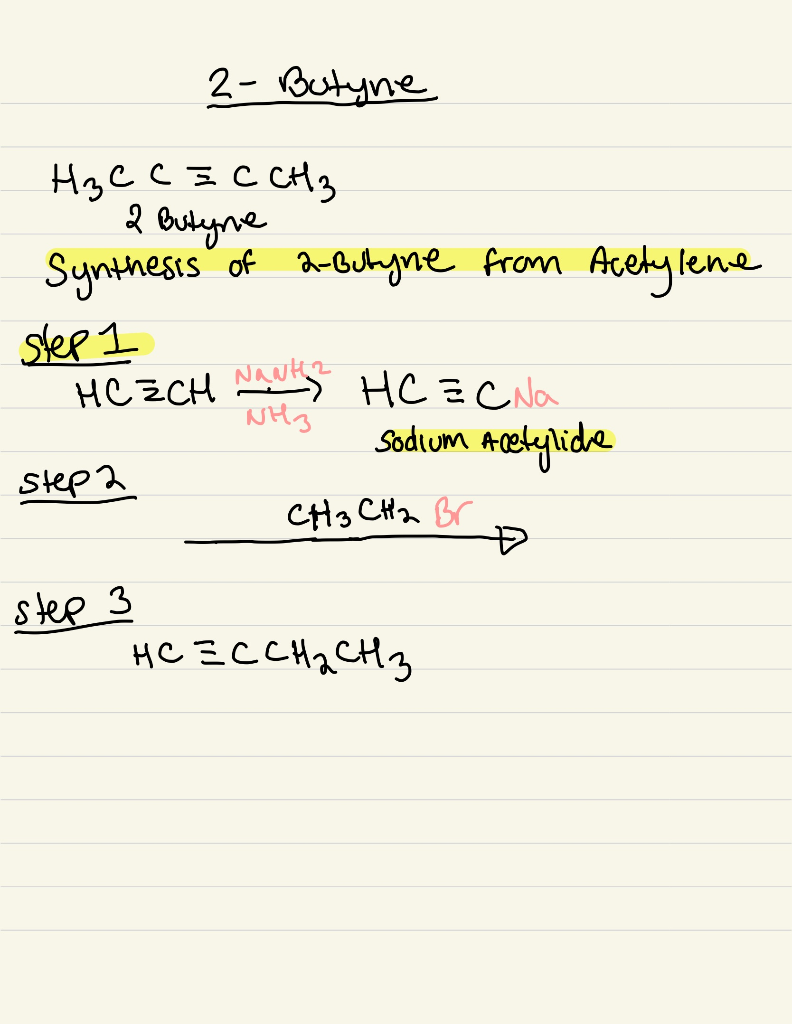 2- Butyne
H₃C C ≡ C CH₃
2 Butyne
Synthesis of 2-Butyne from Acetylene
step 1
HC≡CH NaNH2 → NH₃ HC ≡ CNa
Sodium Acetylide
step 2
CH₃CH₂ Br
step 3
HC ≡ C CH₂CH₃